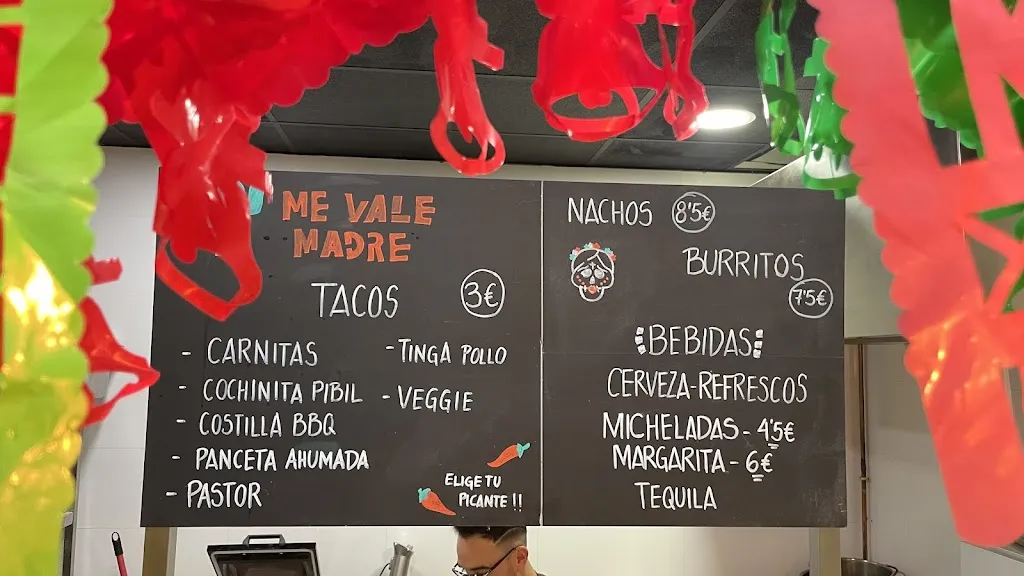 ME VALE
MADRE
TACOS 3€
- CARNITAS
- COCHINITA PIBIL
- COSTILLA BBQ
- PANCETA AHUMADA
- PASTOR
- TINGA POLLO
- VEGGIE
ELIGE TU
PICANTE !!
NACHOS 8'5€
BURRITOS
7'5€
BEBIDAS
CERVEZA-REFRESCOS
MICHELADAS - 4'5€
MARGARITA - 6€
TEQUILA